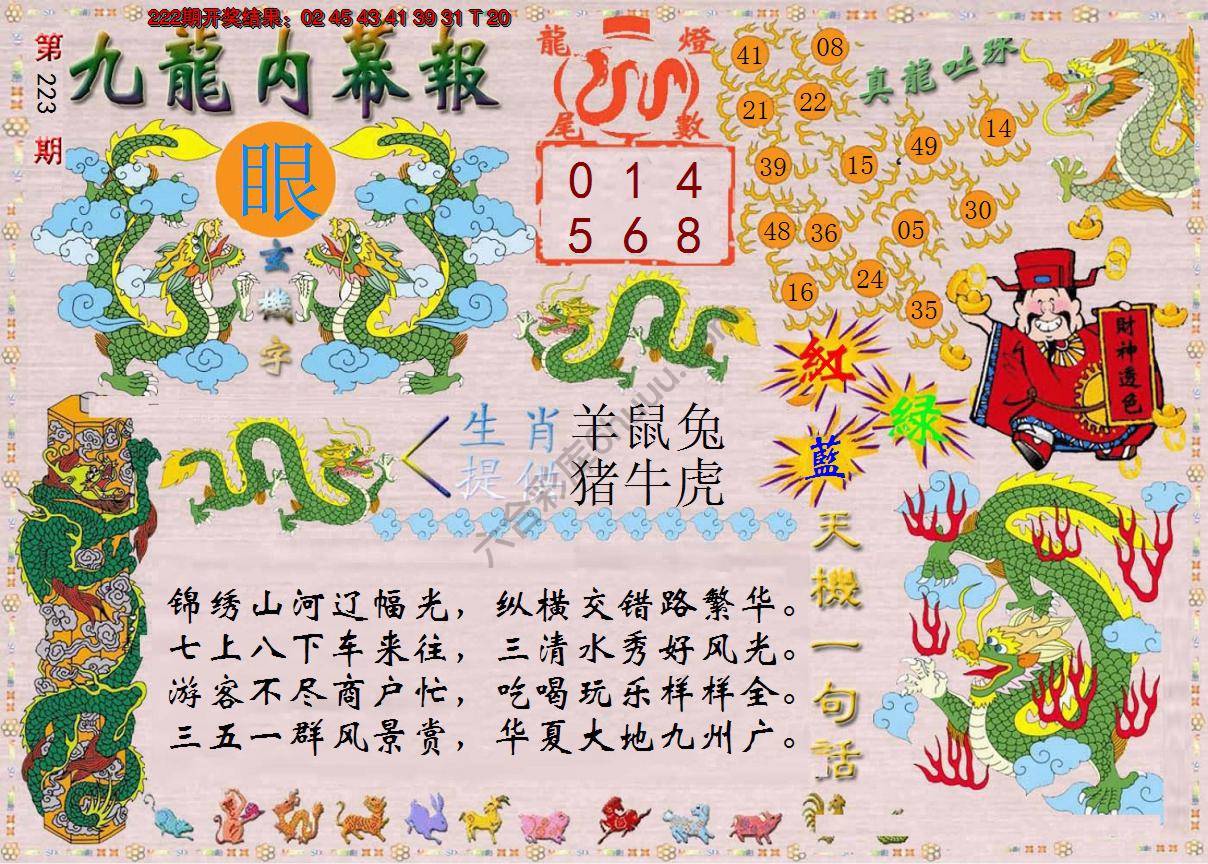 222期开奖结果：02 45 43 41 39 31 T 20
第223期
九龍内幕報
眼
玄機字
龍燈尾數
0 1 4
5 6 8
真龍吐珠
41 08
21 22
49 14
39 15
48 36 05 30
16 24 35
財神透色
紅
綠
藍
生肖 羊鼠兔
提供 猪牛虎
天機一句話
锦绣山河辽幅光，纵横交错路繁华。
七上八下车来往，三清水秀好风光。
游客不尽商户忙，吃喝玩乐样样全。
三五一群风景赏，华夏大地九州广。